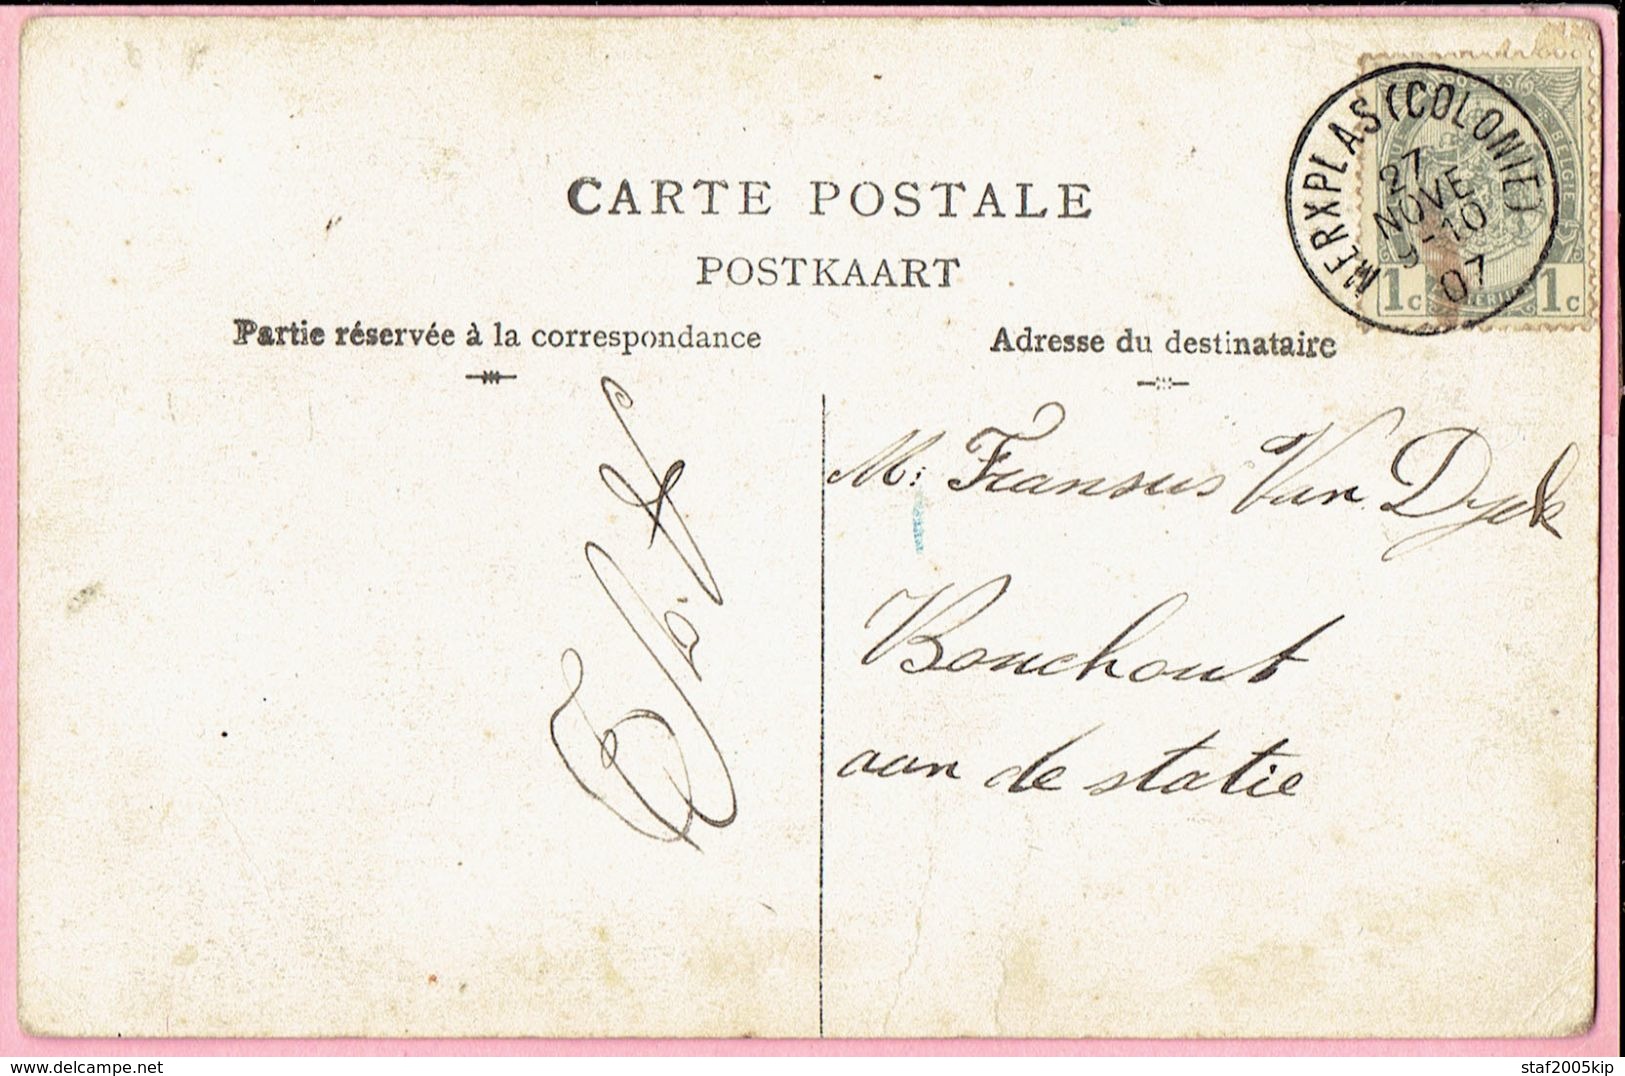 CARTE POSTALE
POSTKAART
Partie réservée à la correspondance
Adresse du destinataire
MERXPLAS (COLONIE)
27
NOVE
9-10
07
BELGIE
1c 1c
M: Fransus Van Dyck
Bouchout
aan de statie
delcampe.net
staf2005kip